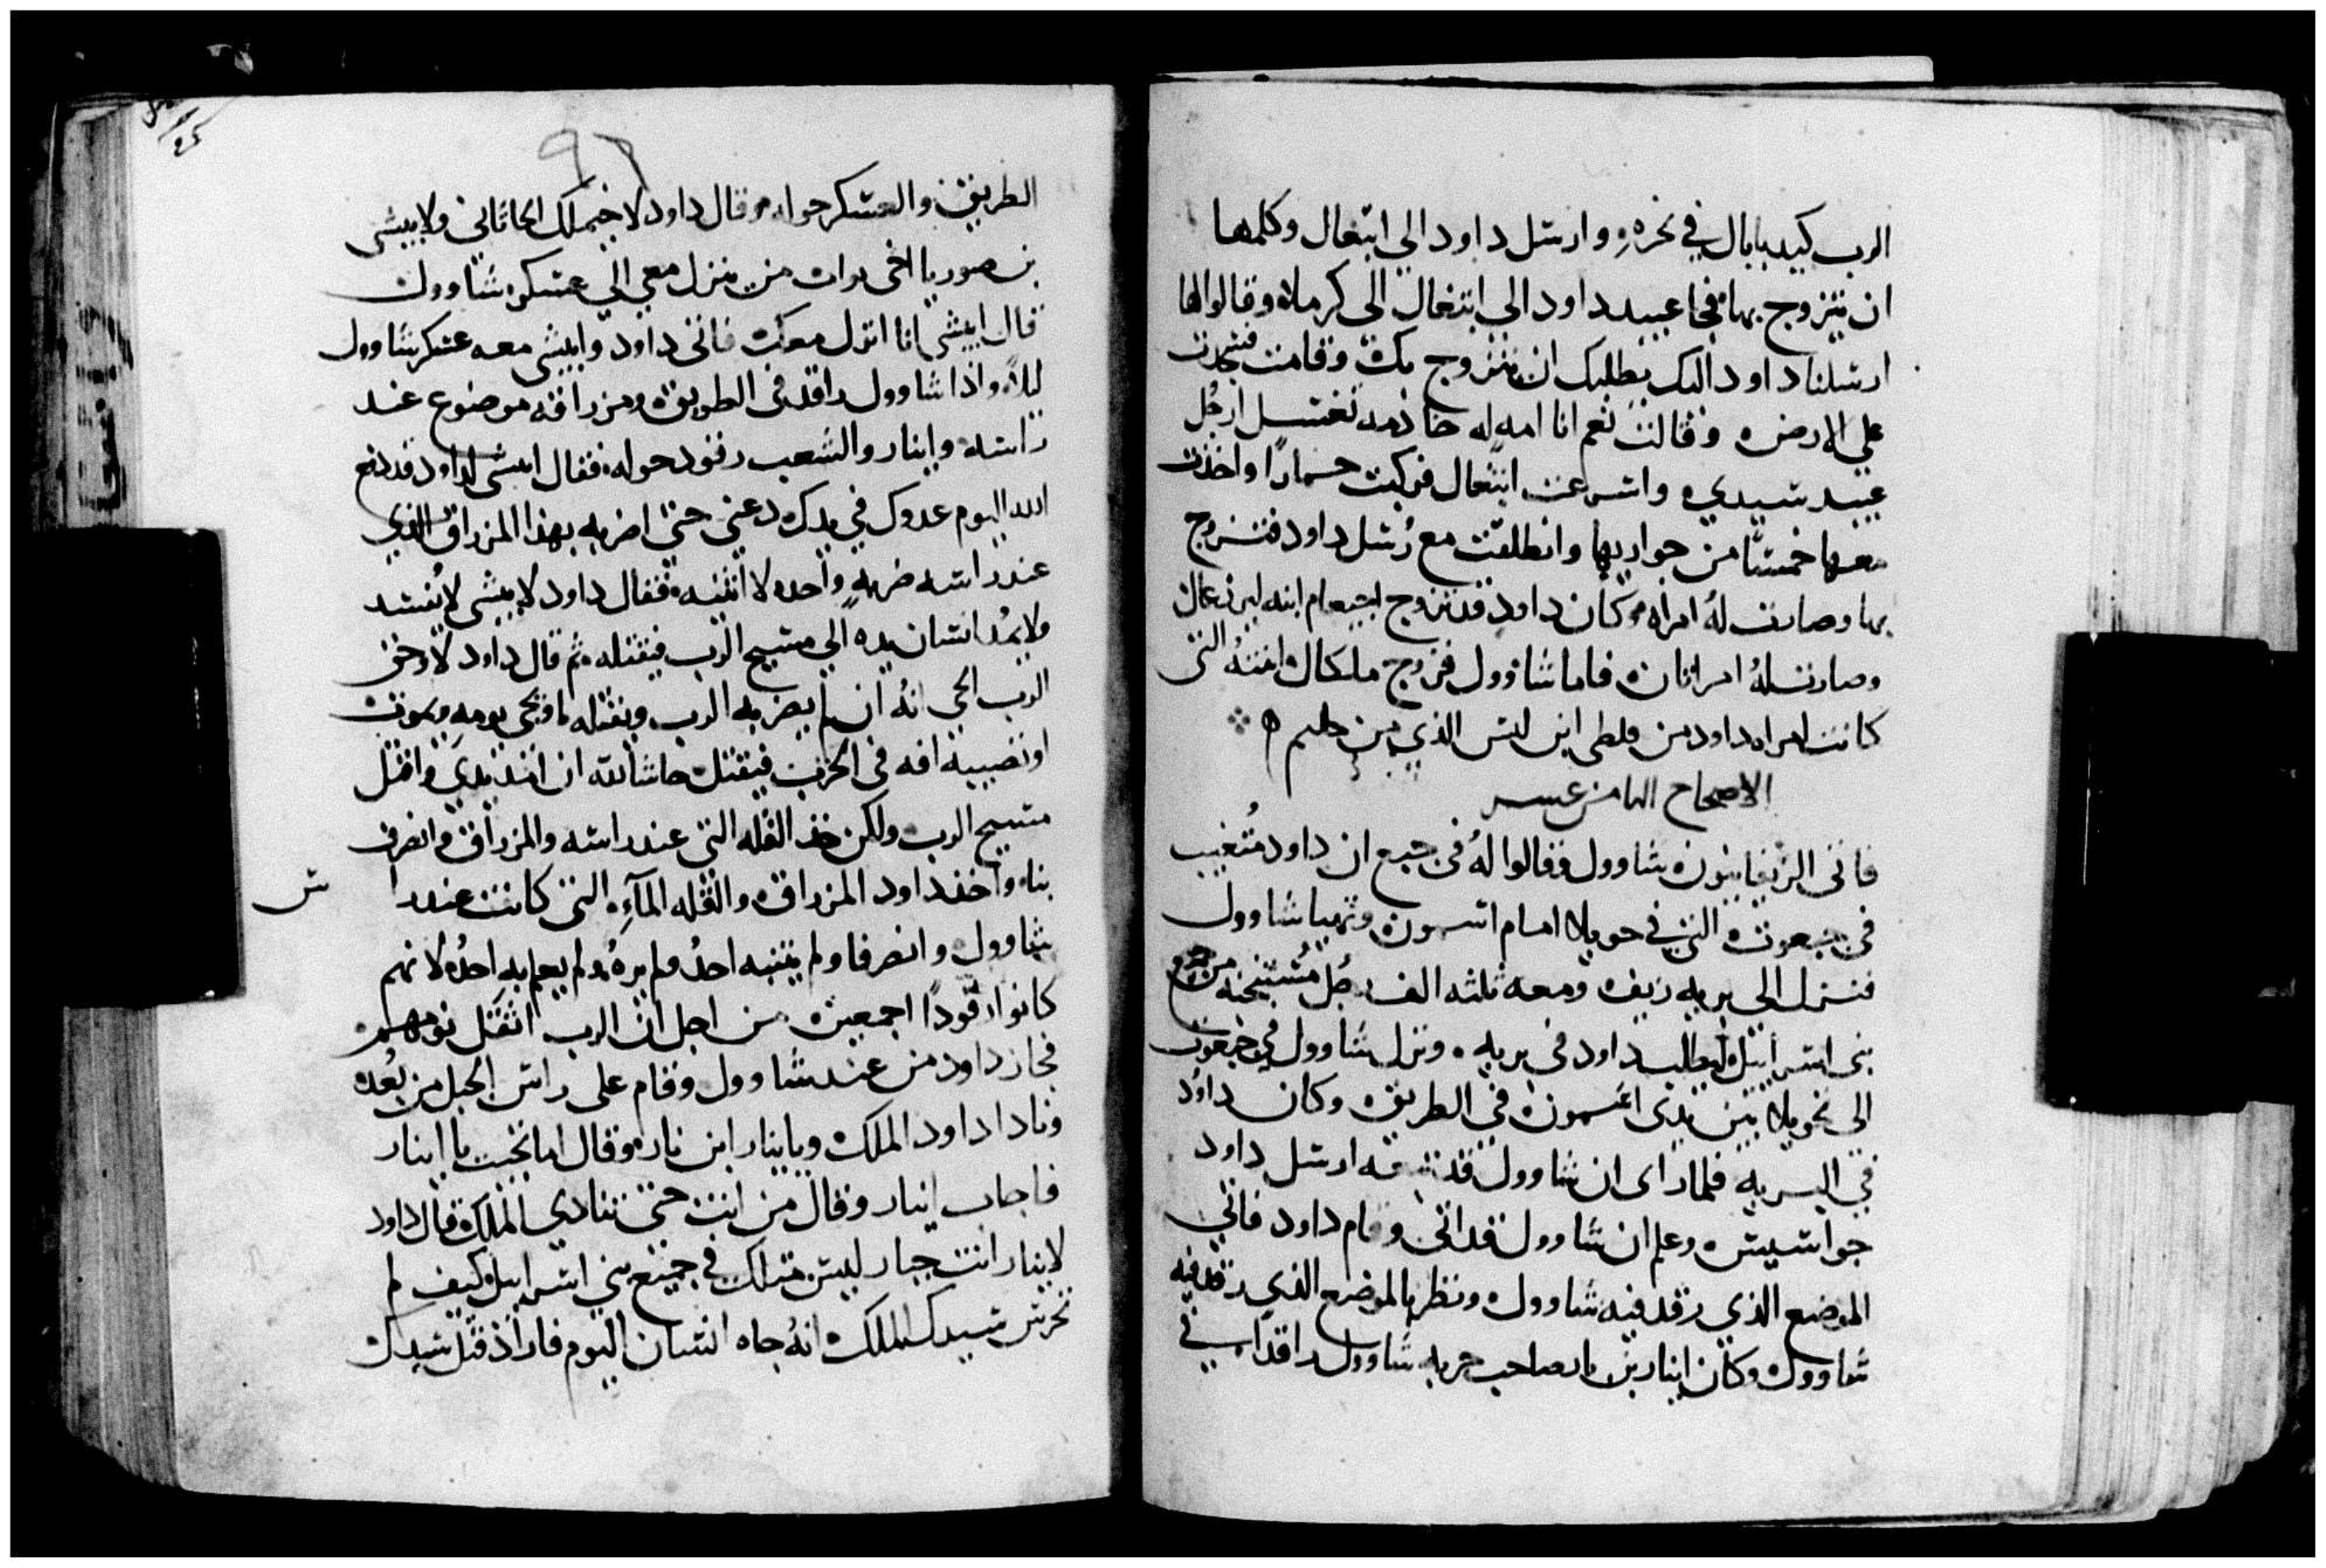 الرب كيد بابال في نحره وارسل داود الي ابتغال وكلمها
ان يتزوج بها فجا عبيد داود الى ابتغال الى كرملا وقالوا لها
ارسلنا داود اليك يطلبك ان يتزوج بك وقامت فسجدت
علي الارض وقالت نعم انا امه له خادمه تغسل ارجُل
عبيد سيدي واسرعت ابتغال فركبت حمارًا واخذت
معها خمسًا من جواريها وانطلقت مع رُسل داود فتزوج
بها وصارت لهُ امراه وكان داود قد تزوج اجيعام ابنه
وصارتا لهُ امراتان فاما شاوول فزوج ملكال ابنتهُ التي
كانت امراه داود من فلطى ابن ليس الذي من جليم
الاصحاح الثامن عشر
فاتى الزيفانيون شاوول وقالوا لهُ في جبع ان داود مُتغيب
في جبعوت التي في حويلا امام اسمون وتهيا شاوول
فنزل الى بريه زيف ومعه ثلثه الف رجُل مُنتخبه من جميع
بني اسراييل ليطلب داود في بريه ونزل شاوول في جبعوت
الى نحويلا بين يدى اسمون في الطريق وكان داوُد
في البريه فلما راى ان شاوول قد تبعه ارسل داود
جواسيس وعلم ان شاوول قد اتى وقام داود فاتي
الموضع الذي رقد فيه شاوول ونظر بالموضع الذي رقد فيه
شاوول وكان ابنار بن نار صاحب حربه شاوول راقدا في
الطريق والعسكر حوله وقال داود لاخيملك الحاثاني ولابيشى
بن صوريا اخى يواب من ينزل معي الي عسكر شاوول
قال ابيشي انا انزل معك فاتى داود وابيشي معه عسكر شاوول
ليلاً واذا شاوول راقد في الطريق ومزراقه موضوع عند
راسه وابنار والشعب رقود حوله فقال ابيشى لداود قد دفع
الله اليوم عدوك في يدك دعني حتى اضربه بهذا المزراق الذي
عند راسه ضربهً واحده لا اثنيه فقال داود لابيشى لا يُفسد
ولا يمُد انسان يده الي مسيح الرب فيقتله ثم قال داود لا وحق
الرب الحي انهُ ان لم يضربه الرب ويقتله او يجي يومه ويموت
او تصيبه افه في الحرب فيقتل حاشا لله ان امد يدي واقتل
مسيح الرب ولكن خذ القُله التى عند راسه والمزراق وانصرف
بنا واخذ داود المزراق والقُله المآء التى كانت عند را س
شاوول وانصرفا ولم ينتبه احدُ ولم يرهُ ولم يعلم به احدُ لانهم
كانوا رقودًا اجمعين من اجل ان الرب اثقل نومهم
فجاز داود من عند شاوول وقام على راس الجبل من بُعد
ونادا داود الملك ويا ابنار ابن نار وقال اما تجيب يا ابنار
فاجاب ابنار وقال من انت حتى تنادي الملك قال داود
لابنار انت جبار ليس مثلك في جميع بني اسراييل كيف لم
تحرس سيدك الملك انهُ جاه انسان اليوم فاراد قتل سيدك